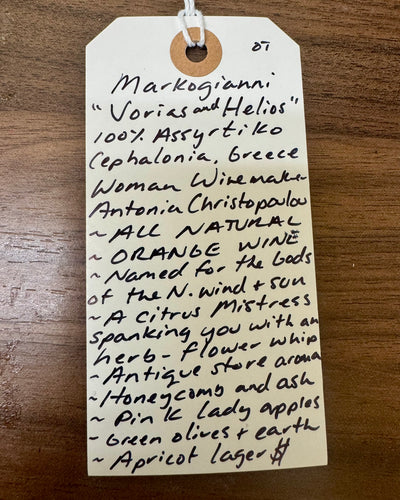 OT
Markogianni
"Vorias and Helios"
100% Assyrtiko
Cephalonia, Greece
Woman Winemaker
Antonia Christopoulou
~ ALL NATURAL
~ ORANGE WINE
~ Named for the Gods
of the N. wind + sun
~ A Citrus Mistress
spanking you with an
herb-flower whip
~ Antique store aroma
~ Honeycomb and ash
~ Pink lady apples
~ Green olives + earth
~ Apricot lager $